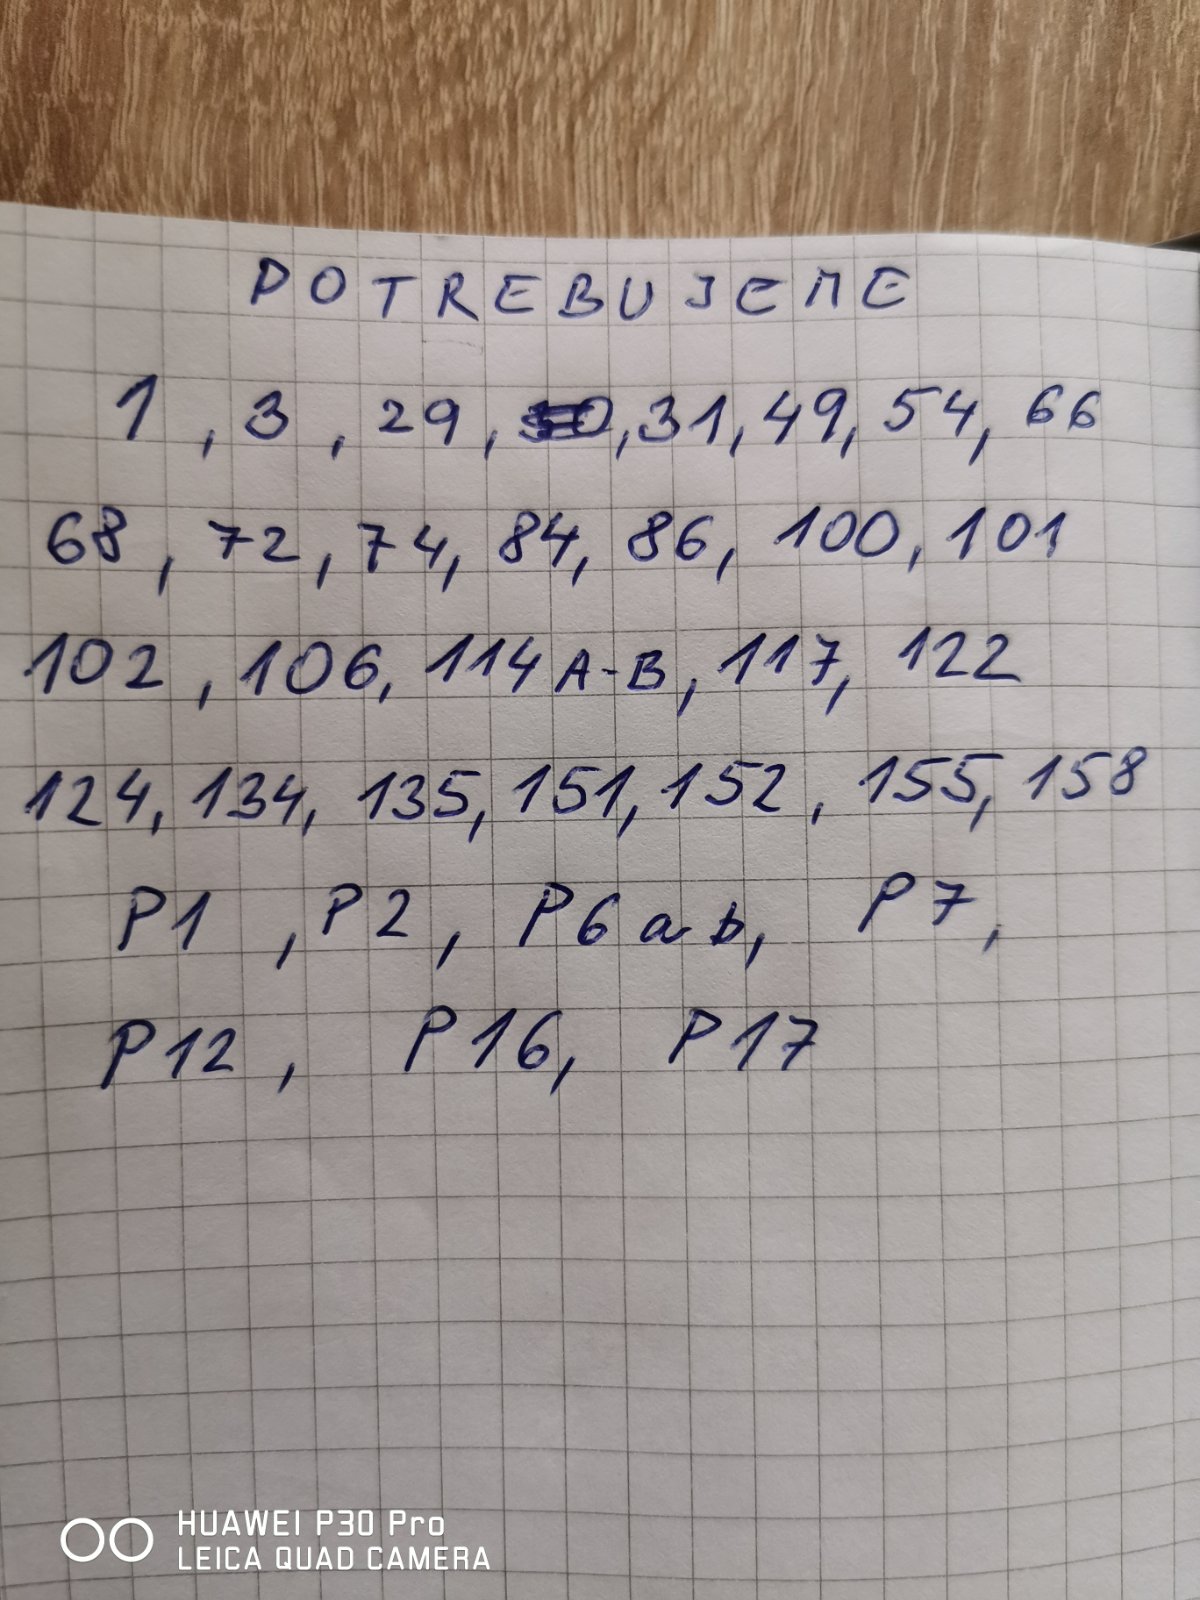 POTREBUJEME
1, 3, 29, 31, 49, 54, 66
68, 72, 74, 84, 86, 100, 101
102, 106, 114 A-B, 117, 122
124, 134, 135, 151, 152, 155, 158
P1, P2, P6 a b, P7,
P12, P16, P17
HUAWEI P30 Pro
LEICA QUAD CAMERA